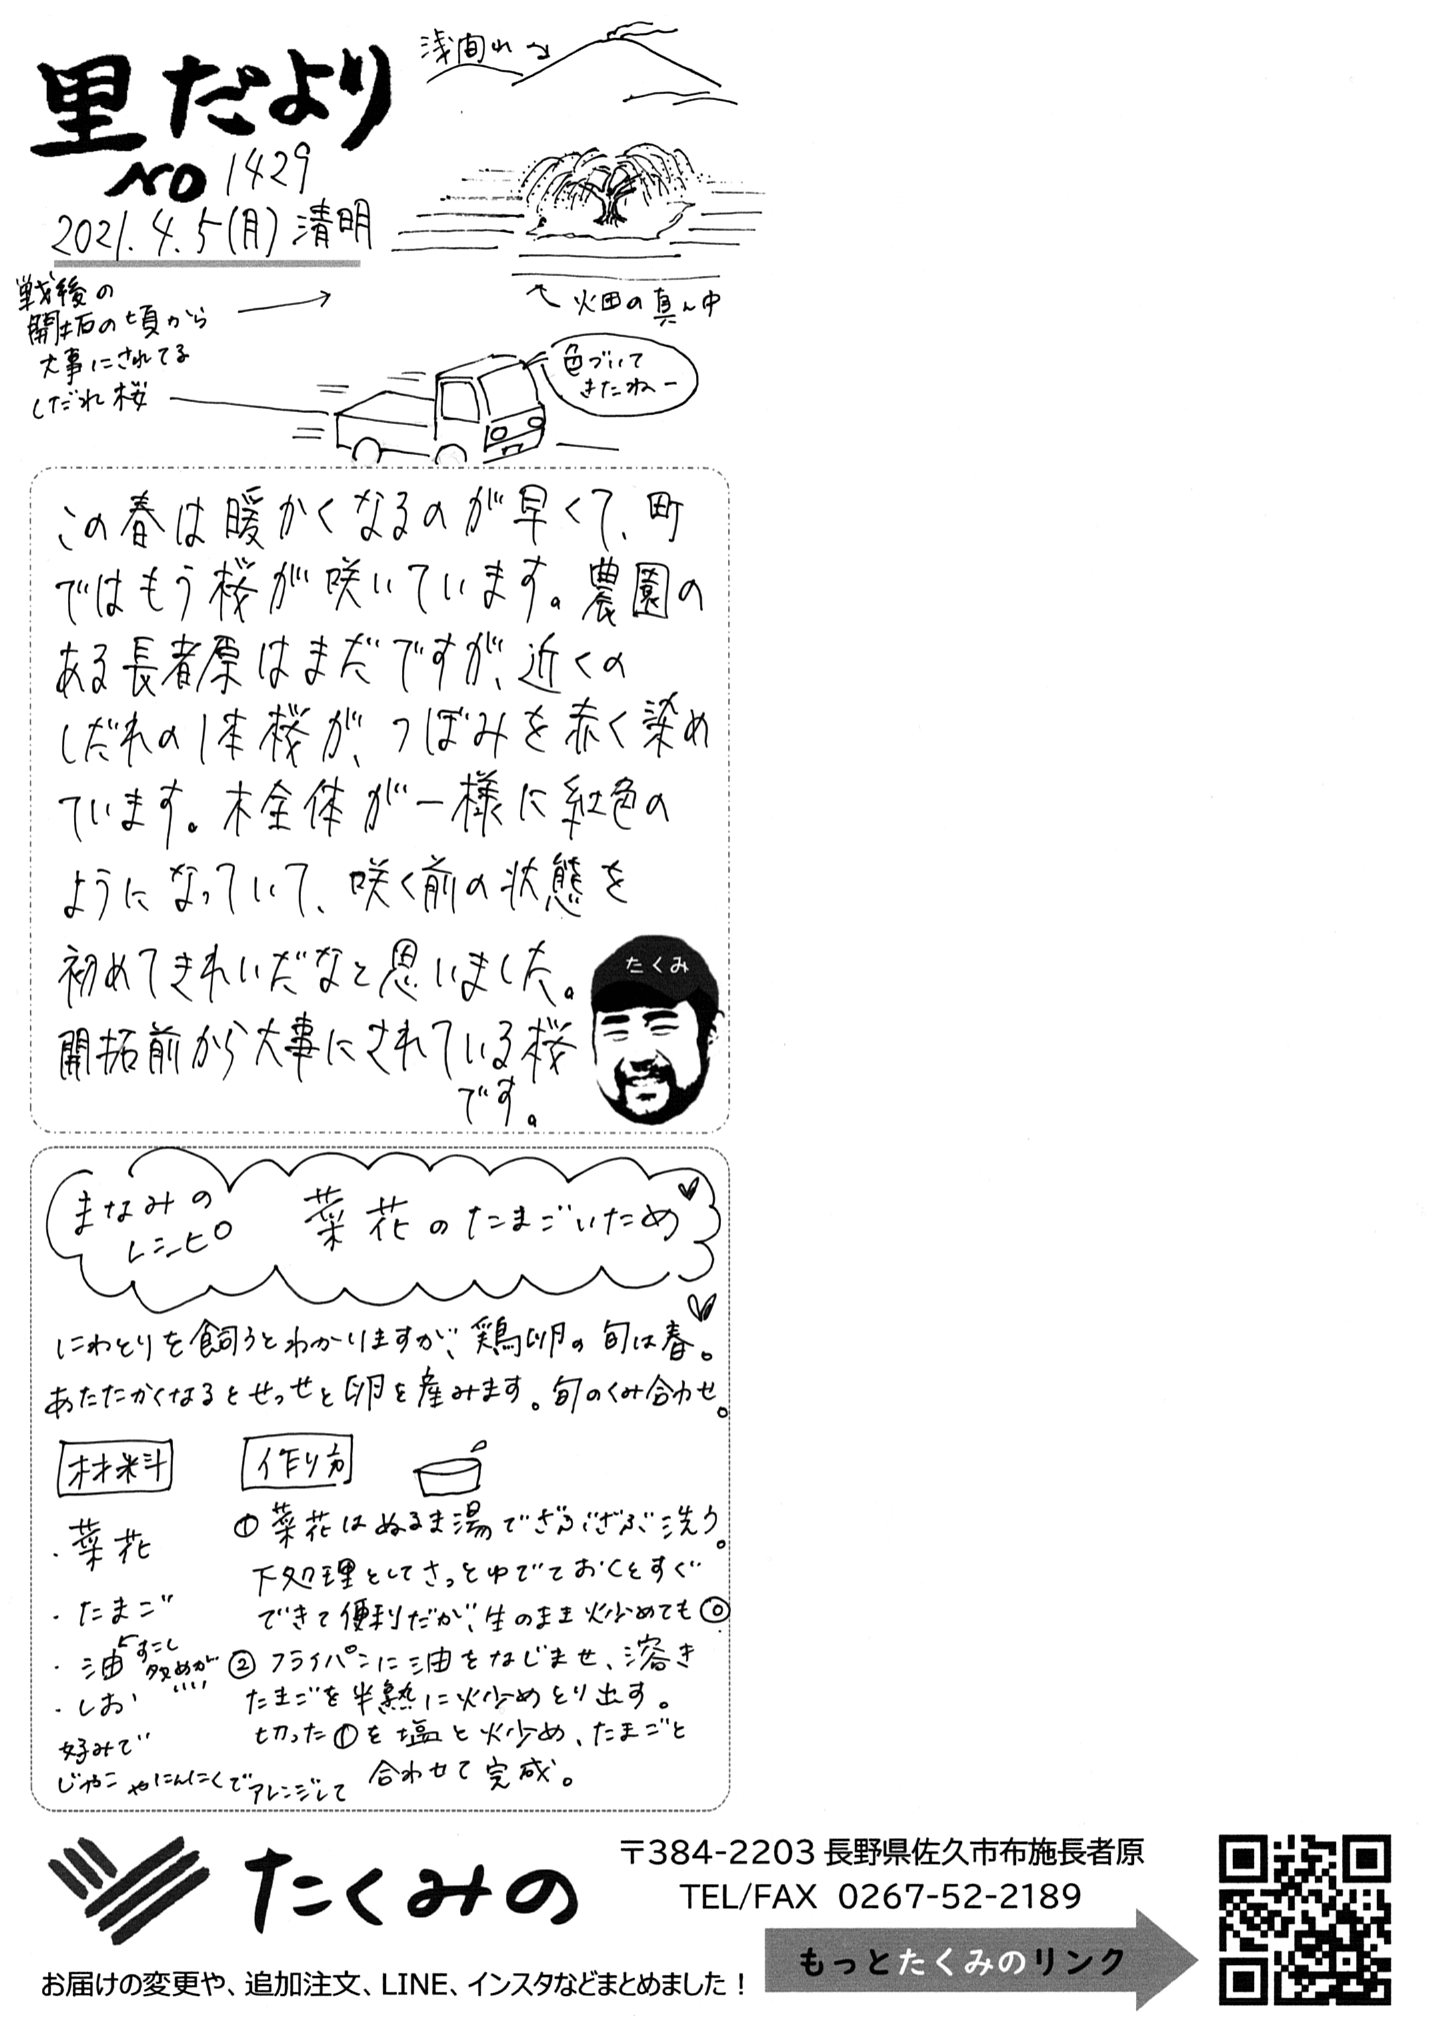 里だより
NO 1429
2021.4.5(月) 清明
浅間山
戦後の
開拓の頃から
大事にされてる
しだれ桜
畑の真ん中
色づいて
きたねー
この春は暖かくなるのが早くて、町
ではもう桜が咲いています。農園の
ある長者原はまだですが、近くの
しだれの1本桜が、つぼみを赤く染め
ています。木全体が一様に紅色の
ようになっていて、咲く前の状態を
初めてきれいだなと思いました。
開拓前から大事にされている桜
です。
たくみ
まなみの
レシピ
菜花のたまごいため
にわとりを飼うとわかりますが、鶏卵の旬は春。
あたたかくなるとせっせと卵を産みます。旬のくみ合わせ。
材料
・菜花
・たまご
・油
すこし
多めが
いい
・しお
好みで
じゃこやにんにくでアレンジして
作り方
① 菜花はぬるま湯でざぶざぶ洗う。
下処理としてさっとゆでておくとすぐ
できて便利だが、生のまま炒めても◎
② フライパンに油をなじませ、溶き
たまごを半熟に炒めとり出す。
切った①を塩と炒め、たまごと
合わせて完成。
たくみの
〒384-2203 長野県佐久市布施長者原
TEL/FAX 0267-52-2189
もっとたくみのリンク
お届けの変更や、追加注文、LINE、インスタなどまとめました！